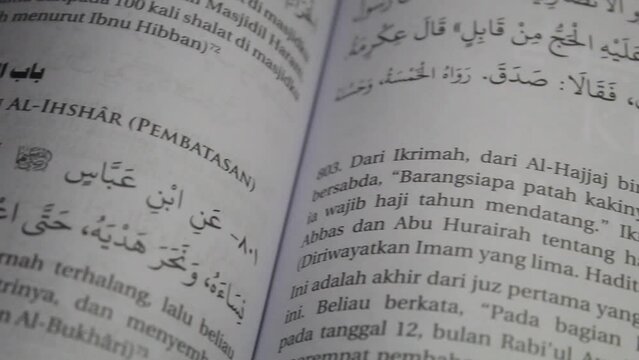 daripada 100 kali shalat di masjidku
n menurut Ibnu Hibban)⁷²
باب
AL-IHSHÂR (PEMBATASAN)
٨٠١- عَنِ ابْنِ عَبَّاسٍ
نِسَاءَهُ، وَنَحَرَ هَدْيَهُ، حَتَّى
rnah terhalang, lalu beliau
trinya, dan menyem
n Al-Bukhâri)⁷³
عَلَيْهِ الْحَجُّ مِنْ قَابِلٍ» قَالَ عِكْرِمَةُ
فَقَالَا: صَدَقَ. رَوَاهُ الْخَمْسَةُ، وَحَسَّنَهُ
803. Dari Ikrimah, dari Al-Hajjaj bin
bersabda, “Barangsiapa patah kakiny
ia wajib haji tahun mendatang.” Ik
Abbas dan Abu Hurairah tentang ha
(Diriwayatkan Imam yang lima. Hadit
Ini adalah akhir dari juz pertama yang
ini. Beliau berkata, “Pada bagian
pada tanggal 12, bulan Rabi’ul A